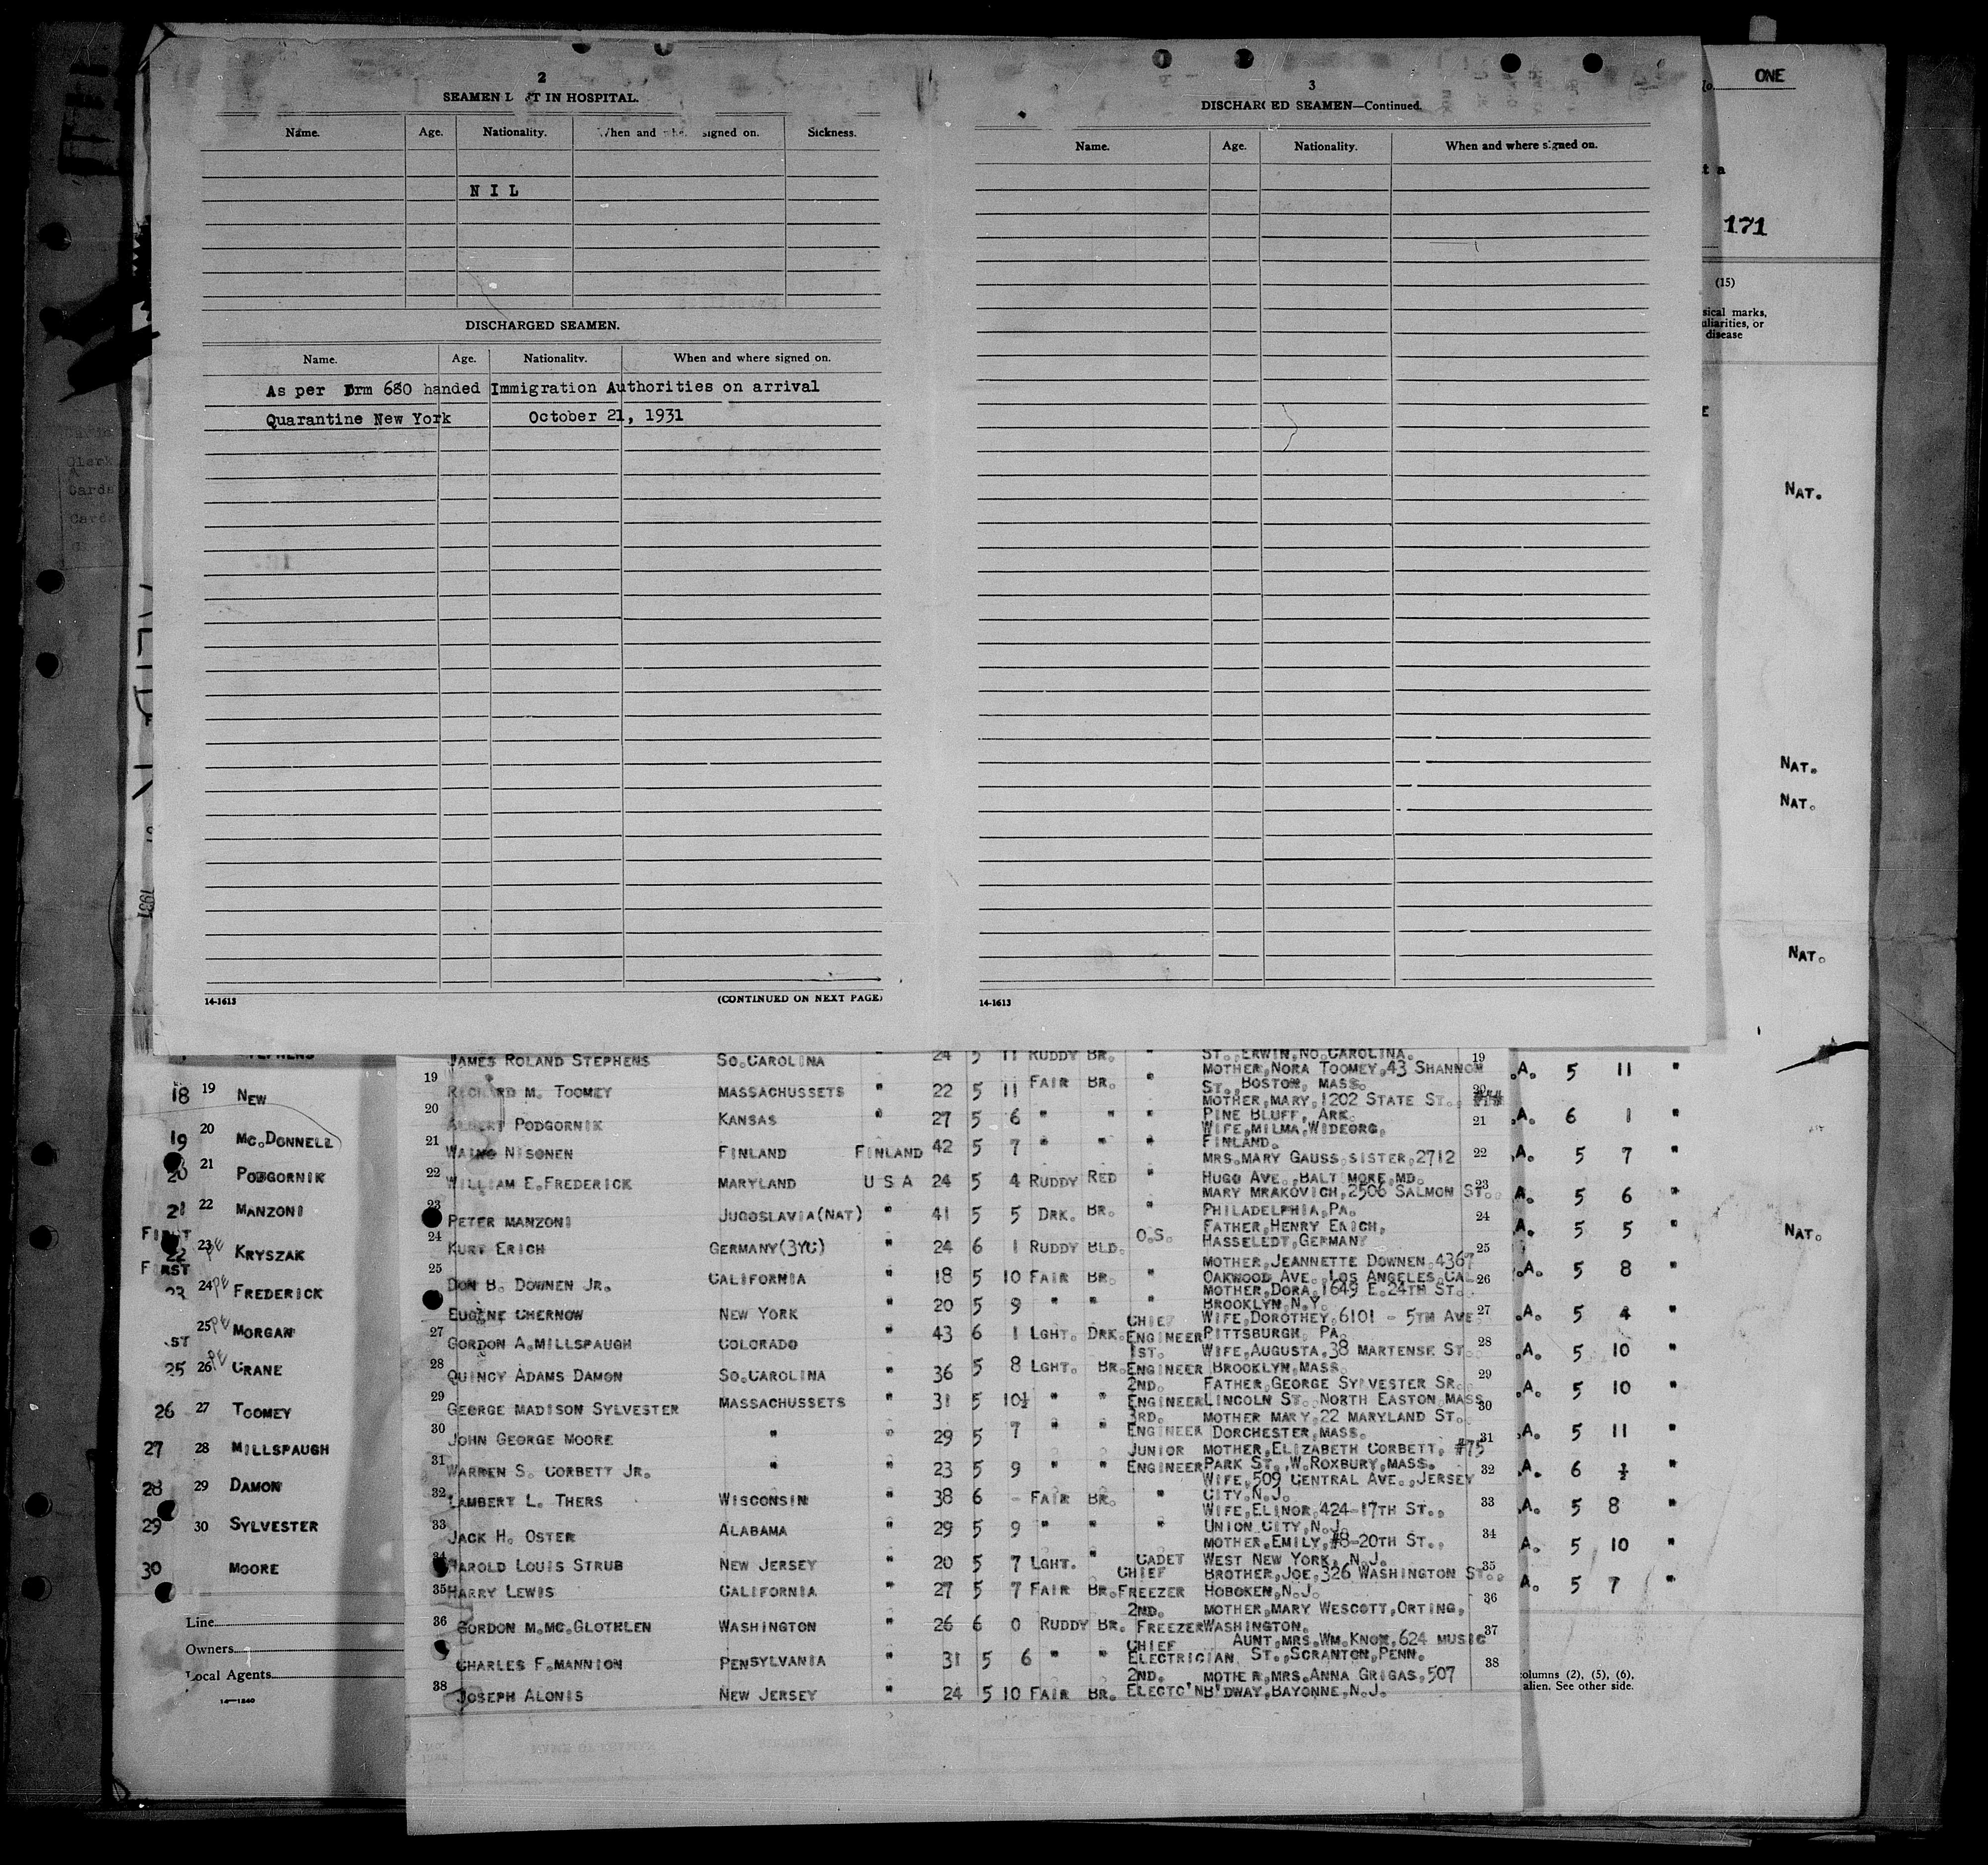 2
SEAMEN L T IN HOSPITAL.
Name. Age. Nationality. When and signed on. Sickness.
N I L
DISCHARGED SEAMEN.
Name. Age. Nationality. When and where signed on.
As per rm 680 handed Immigration Authorities on arrival
Quarantine New York October 21, 1931
14-1613 (CONTINUED ON NEXT PAGE)
3
DISCHARGED SEAMEN—Continued.
Name. Age. Nationality. When and where signed on.
14-1613
ONE
171
(15)
sical marks,
uliarities, or
disease
NAT.
NAT.
NAT.
NAT.
NAT.
1931
STEPHENS
18 19 NEW
19 20 MC.DONNELL
20 21 PODGORNIK
21 22 MANZONI
FIRST
22 23 PE KRYSZAK
FIRST
23 24 PE FREDERICK
25 PE MORGAN
ST
25 26 PE CRANE
26 27 TOOMEY
27 28 MILLSPAUGH
28 29 DAMON
29 30 SYLVESTER
30 MOORE
Line
Owners
Local Agents
14—1240
JAMES ROLAND STEPHENS SO.CAROLINA " 24 5 11 RUDDY BR. " ST.,ERWIN,NO.CAROLINA. 19
MOTHER,NORA TOOMEY,43 SHANNON
19 RICHARD M. TOOMEY MASSACHUSSETS " 22 5 11 FAIR BR. " ST.,BOSTON, MASS. 20
MOTHER,MARY,1202 STATE ST.,
20 ALBERT PODGORNIK KANSAS " 27 5 6 " " " PINE BLUFF, ARK. 21
WIFE,MILMA,WIDEORG,
21 WAINO NISONEN FINLAND FINLAND 42 5 7 " " " FINLAND. 22
MRS.MARY GAUSS,SISTER,2712
22 WILLIAM E.FREDERICK MARYLAND U S A 24 5 4 RUDDY RED " HUGO AVE.,BALTIMORE,MD. 23
MARY MRAKOVICH,2506 SALMON ST.,
23 PETER MANZONI JUGOSLAVIA(NAT) " 41 5 5 DRK. BR. " PHILADELPHIA,PA. 24
FATHER,HENRY ERICH,
24 KURT ERICH GERMANY(3YC) " 24 6 1 RUDDY BLD. O.S. HASSELEDT,GERMANY 25
MOTHER,JEANNETTE DOWNEN,4367
25 DON B. DOWNEN JR. CALIFORNIA " 18 5 10 FAIR BR. " OAKWOOD AVE.,LOS ANGELES,CAL 26
MOTHER,DORA,1649 E.24TH ST.
EUGENE CHERNOW NEW YORK " 20 5 9 " " " BROOKLYN,N.Y. 27
CHIEF WIFE,DOROTHEY,6101 - 5TH AVE
27 GORDON A.MILLSPAUGH COLORADO " 43 6 1 LGHT. DRK. ENGINEER PITTSBURGH, PA. 28
1ST. WIFE,AUGUSTA,38 MARTENSE ST.
28 QUINCY ADAMS DAMON SO.CAROLINA " 36 5 8 LGHT. BR. ENGINEER BROOKLYN,MASS. 29
2ND. FATHER,GEORGE SYLVESTER SR.
29 GEORGE MADISON SYLVESTER MASSACHUSSETS " 31 5 10½ " " ENGINEER LINCOLN ST. NORTH EASTON,MASS 30
3RD. MOTHER MARY,22 MARYLAND ST.
30 JOHN GEORGE MOORE " " 29 5 7 " " ENGINEER DORCHESTER,MASS. 31
JUNIOR MOTHER,ELIZABETH CORBETT, #75
31 WARREN S. CORBETT JR. " " 23 5 9 " " ENGINEER PARK ST.,W.ROXBURY,MASS. 32
WIFE,509 CENTRAL AVE.,JERSEY
32 LAMBERT L. THERS WISCONSIN " 38 6 - FAIR BR. " CITY.N.J. 33
WIFE,ELINOR,424-17TH ST.,
33 JACK H. OSTER ALABAMA " 29 5 9 " " " UNION CITY,N.J. 34
MOTHER,EMILY,#8-20TH ST.,
34 HAROLD LOUIS STRUB NEW JERSEY " 20 5 7 LGHT. " CADET WEST NEW YORK, N.J. 35
CHIEF BROTHER,JOE,326 WASHINGTON ST.,
35 HARRY LEWIS CALIFORNIA " 27 5 7 FAIR BR. FREEZER HOBOKEN,N.J. 36
2ND. MOTHER,MARY WESCOTT,ORTING,
36 GORDON M.MC.GLOTHLEN WASHINGTON " 26 6 0 RUDDY BR. FREEZER WASHINGTON. 37
CHIEF AUNT,MRS.WM.KNOX,624 MUSIC
CHARLES F.MANNION PENSYLVANIA " 31 5 6 " " ELECTRICIAN ST.,SCRANTON,PENN. 38
2ND. MOTHER,MRS.ANNA GRIGAS,507
38 JOSEPH ALONIS NEW JERSEY " 24 5 10 FAIR BR. ELECTC'N B'DWAY,BAYONNE,N.J.
.A. 5 11 "
.A. 6 1 "
.A. 5 7 "
A. 5 6 "
.A. 5 5 "
.A. 5 8 "
.A. 5 4 "
.A. 5 10 "
.A. 5 10 "
.A. 5 11 "
.A. 6 ½ "
.A. 5 8 "
A. 5 10 "
A. 5 7 "
columns (2), (5), (6),
alien. See other side.